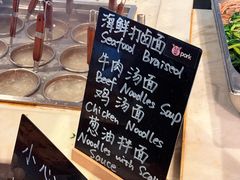 海鲜打卤面
Seafood Braised
pork
牛肉汤面
Beef Noodles Soup
鸡汤面
Chicken Noodles
葱油拌面
Noodles with Scallion
Sauce
小心